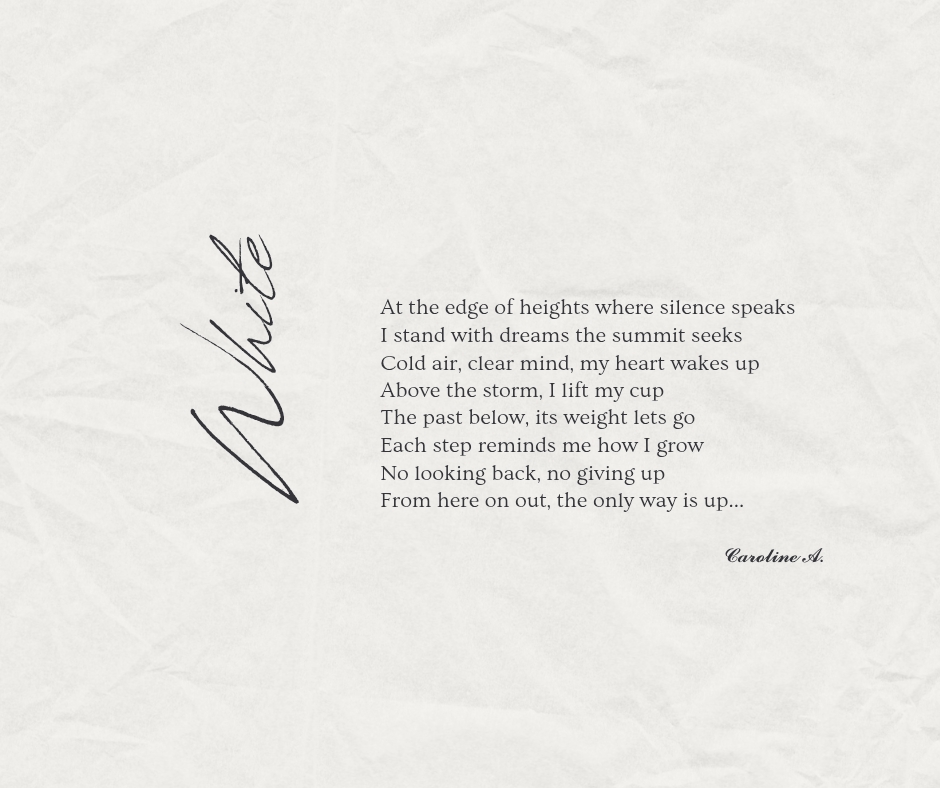 White
At the edge of heights where silence speaks
I stand with dreams the summit seeks
Cold air, clear mind, my heart wakes up
Above the storm, I lift my cup
The past below, its weight lets go
Each step reminds me how I grow
No looking back, no giving up
From here on out, the only way is up...
Caroline A.